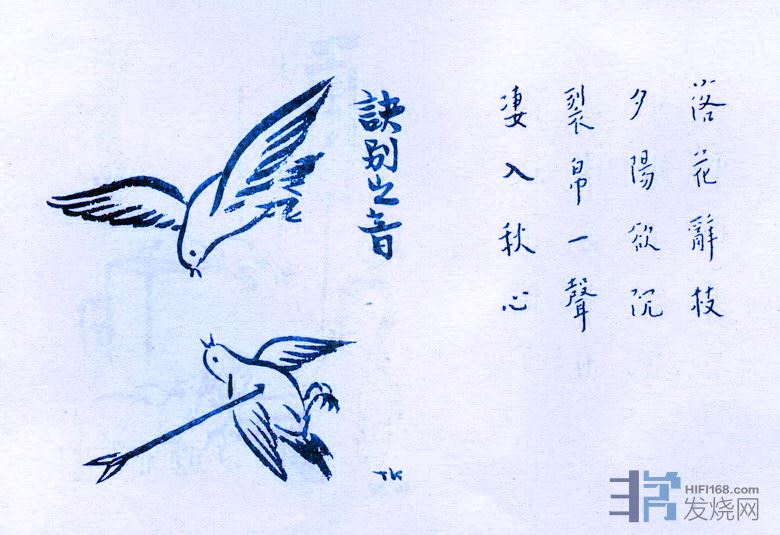 落花辭枝
夕陽欲沉
裂帛一聲
凄入秋心
訣別之音
TK
HIFI168.com
发烧网